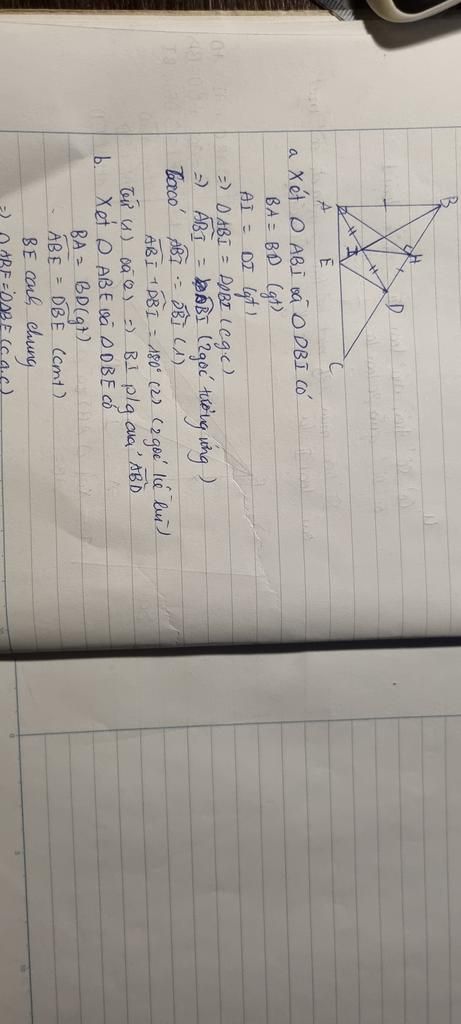 B
H
D
A
I
E
C
a Xét Δ ABI và Δ DBI có
BA = BD (gt)
AI = DI (gt)
=) Δ ABI = Δ DBI (c.g.c)
=) ABI = DBI (2 góc tương ứng)
Ta có ABI = DBI (1)
ABI + DBI = 180° (2) (2 góc kề bù)
Từ (1) và (2) =) BI p/g của ABD
b. Xét Δ ABE và Δ DBE có
BA = BD (gt)
ABE = DBE (cmt)
BE cạnh chung
=) Δ ABE = Δ DBE (c.g.c)